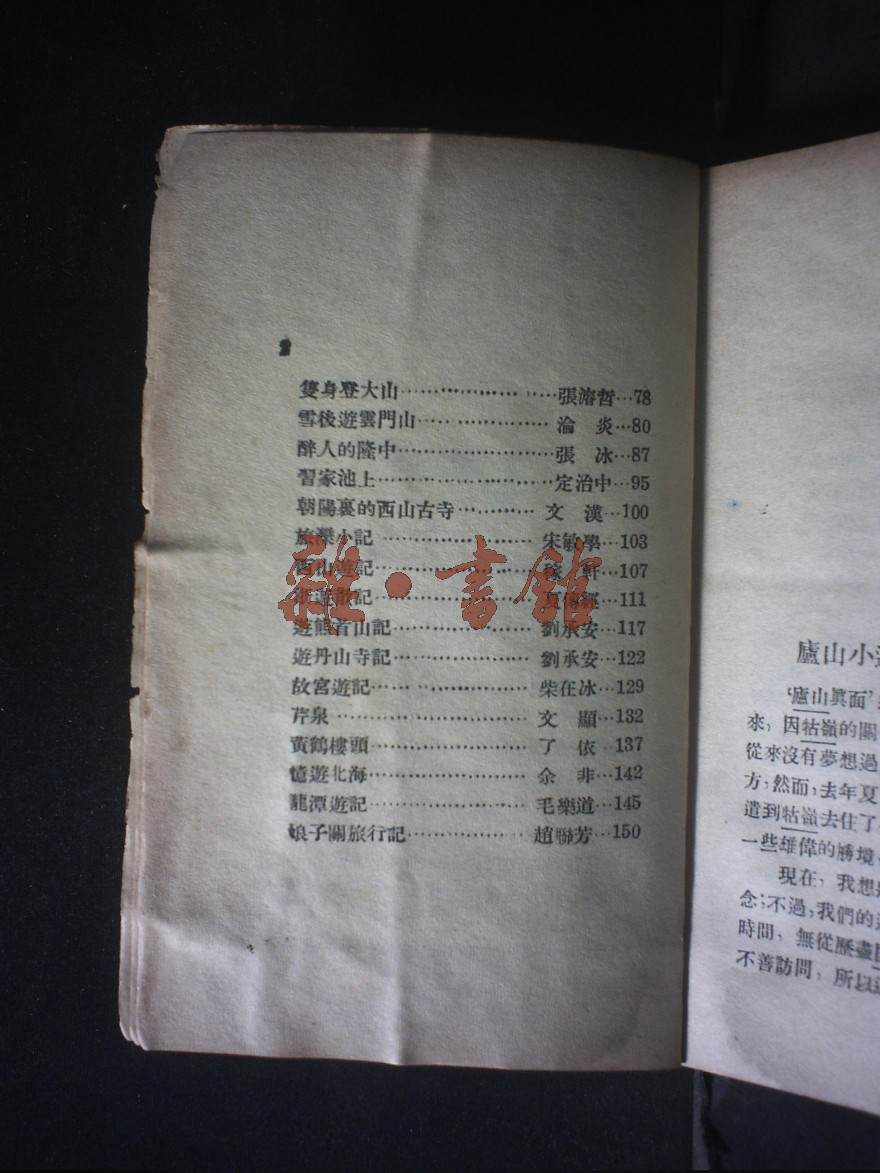 2
隻身登大山…………………張溶哲…78
雪後遊雲門山………………淪　炎…80
醉人的隆中…………………張　冰…87
習家池上……………………定治中…95
朝陽裏的西山古寺…………文　漢…100
旅灤小記……………………宋敏學…103
西山遊記……………………稼　軒…107
遊散記………………………夏傳經…111
遊熊耳山記…………………劉承安…117
遊丹山寺記…………………劉承安…122
故宮遊記……………………柴在冰…129
芹泉…………………………文　顯…132
黃鶴樓頭……………………丁　依…137
憶遊北海……………………余　非…142
龍潭遊記……………………毛樂道…145
娘子關旅行記………………趙聯芳…150
雜·書館
廬山小
‘廬山眞面’
來，因牯嶺的關
從來沒有夢想過
方；然而，去年夏
遣到牯嶺去住了
一些雄偉的勝境
現在，我想
念；不過，我們的
時間，無從歷盡
不善訪問，所以